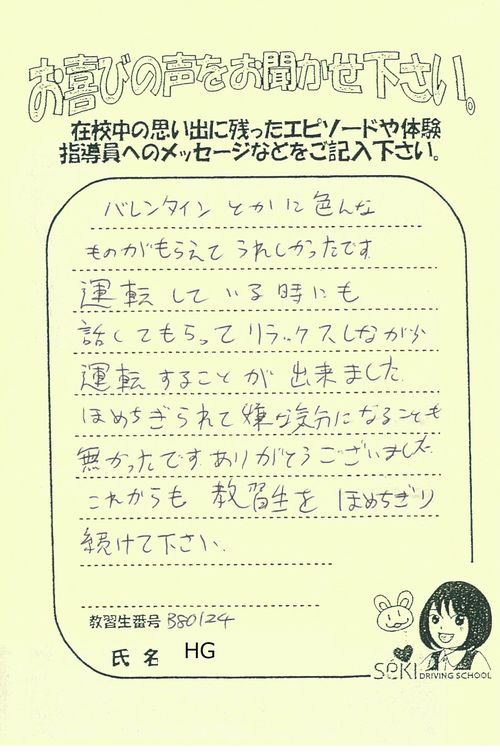 お喜びの声をお聞かせ下さい。
在校中の思い出に残ったエピソードや体験
指導員へのメッセージなどをご記入下さい。
バレンタインとかに色んな
ものがもらえてうれしかったです
運転している時にも
話してもらってリラックスしながら
運転することが出来ました
ほめちぎられて嫌な気分になることも
無かったです ありがとうございました
これからも教習生をほめちぎり
続けて下さい.
教習生番号 B80124
氏名 HG
SEKI DRIVING SCHOOL